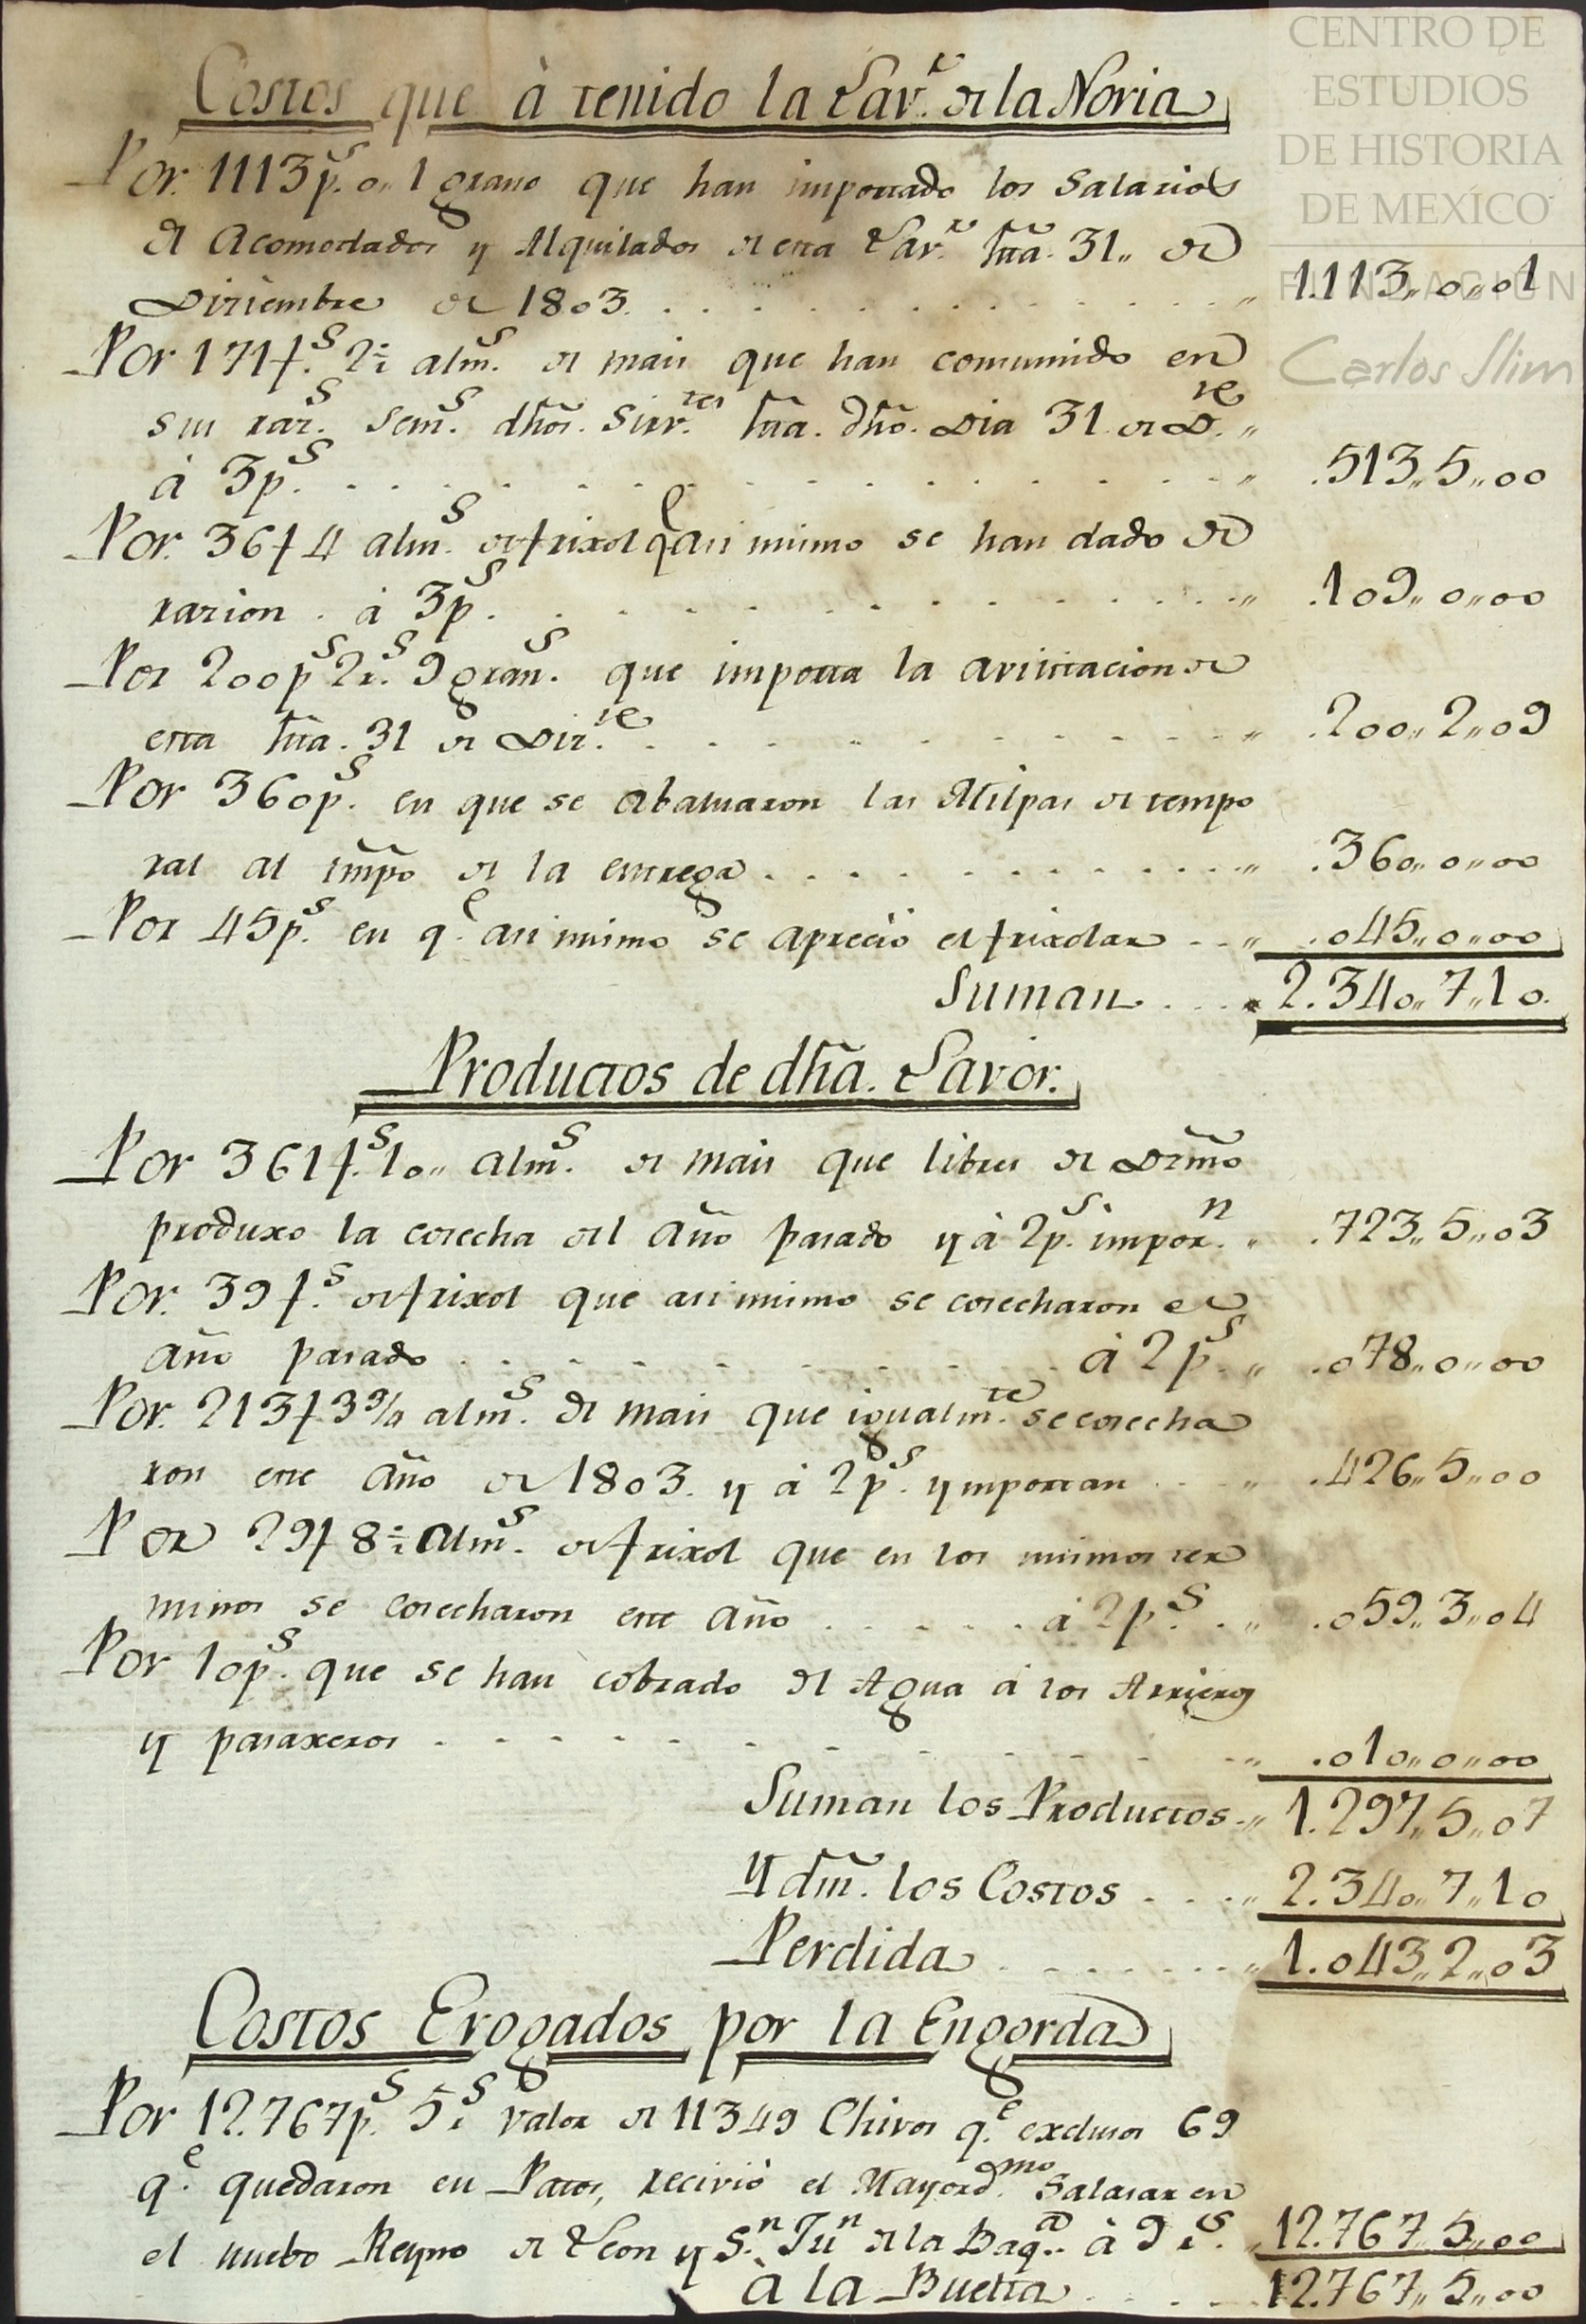 CENTRO DE
ESTUDIOS
DE HISTORIA
DE MEXICO
FUNDACION
Carlos Slim
Costos que à tenido la Lavr. de la Noria
Por. 1113ps. o,, 1 grano que han importado los Salarios
de Acomodados y Alquilados de esta Lavr. hta. 31,, de
Diziembre de 1803. . . . . . . . . . . . . ,, 1.113,, 0,, 01
Por 171fs. 2½ alms. de mais que han consumido en
sus razs. sems. dhos. Sirvtes. hta. dho. Dia 31 de Dre. ,,
à 3ps. . . . . . . . . . . . . . . ,, .513,, 5,, 00
Por. 36f 4 alms. de frixol qe asi mismo se han dado de
razion . à 3ps. . . . . . . . . . . . . ,, .109,, 0,, 00
Por 200ps 2rs. 9 grans. que importa la avilitacion de
esta hta. 31 de Dizre. . . . . . . . . . ,, .200,, 2,, 09
Por 360ps. en que se abaluaron las Milpas de tempo
ral al tmpo de la entrega . . . . . . . . . ,, .360,, 0,, 00
Por 45ps. en qe. asi mismo se apreciò el frixolar . . ,, .045,, 0,, 00
Suman . . . 2.340,, 7,, 10.
Productos de dha. Lavor.
Por 361fs. 10,, alms. de mais que libres de Dzmo
produxo la cosecha del año pasado y à 2ps. imporn. ,, .723,, 5,, 03
Por. 39fs. de frixol que asi mismo se cosecharon el
año pasado . . . . . . . . . . à 2ps. ,, .078,, 0,, 00
Por. 213f 3¾ alms. de mais que igualmte. se cosecha
ron este año de 1803. y à 2ps. ymportan . . . ,, .426,, 5,, 00
Por 29f 8½ alms. de frixol que en los mismos ter
minos se cosecharon este año . . . . . à 2ps. . ,, .059,, 3,, 04
Por 10ps. que se han cobrado del Agua à los Arrieros
y pasaxeros . . . . . . . . . . . . ,, .010,, 0,, 00
Suman los Productos . ,, 1.297,, 5,, 07
Y dm. los Costos . . . ,, 2.340,, 7,, 10
Perdida . . . . . . . ,, 1.043,, 2,, 03
Costos Erogados por la Engorda
Por 12.767ps. 5rs valor de 11349 Chivos qe. exclusos 69
qe. quedaron en Patos, recivió el Mayordmo. Salasar en
el nuebo Reyno de Leon y Sn. Jun de la Baqa. à 9 rs. ,, 12.767,, 5,, 00
à la Buelta . . . . 12.767,, 5,, 00